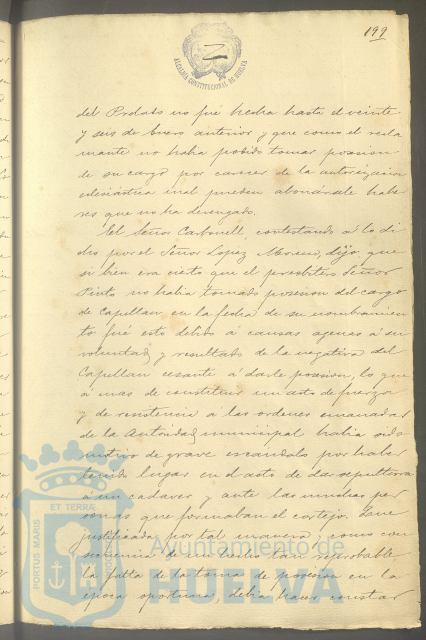 199
ALCALDIA CONSTITUCIONAL DE HUELVA
del Prelado no fué hecha hasta el veinte
y seis de Enero anterior y que como el recla
mante no habia podido tomar posesion
de su cargo por carecer de la autorizacion
eclesiástica mal pueden abonársele habe
res que no ha devengado.
El Señor Carbonell contestando á lo di
cho por el Señor Lopez Moreno, dijo: que
si bien era cierto que el presbitero Señor
Pinto no habia tomado posesion del cargo
de Capellan en la fecha de su nombramien
to fué esto debido á causas agenas á su
voluntad y resultado de la negativa del
Capellan cesante á darle posesion, lo que
á mas de constituir un acto de fuerza
y de resistencia a las ordenes emanadas
de la Autoridad municipal habia sido
motivo de grave escandalo por haber
tenido lugar en el acto de dar sepultura
á un cadaver y ante las muchas per
sonas que formaban el cortejo. Que
justificada por tal manera, como con
secuencia de un hecho tan reprobable
la falta de la toma de posesion en la
época oportuna, debia hacer constar
ET TERRÆ
PORTUS MARIS
CUSTODIA
Ayuntamiento de
HUELVA